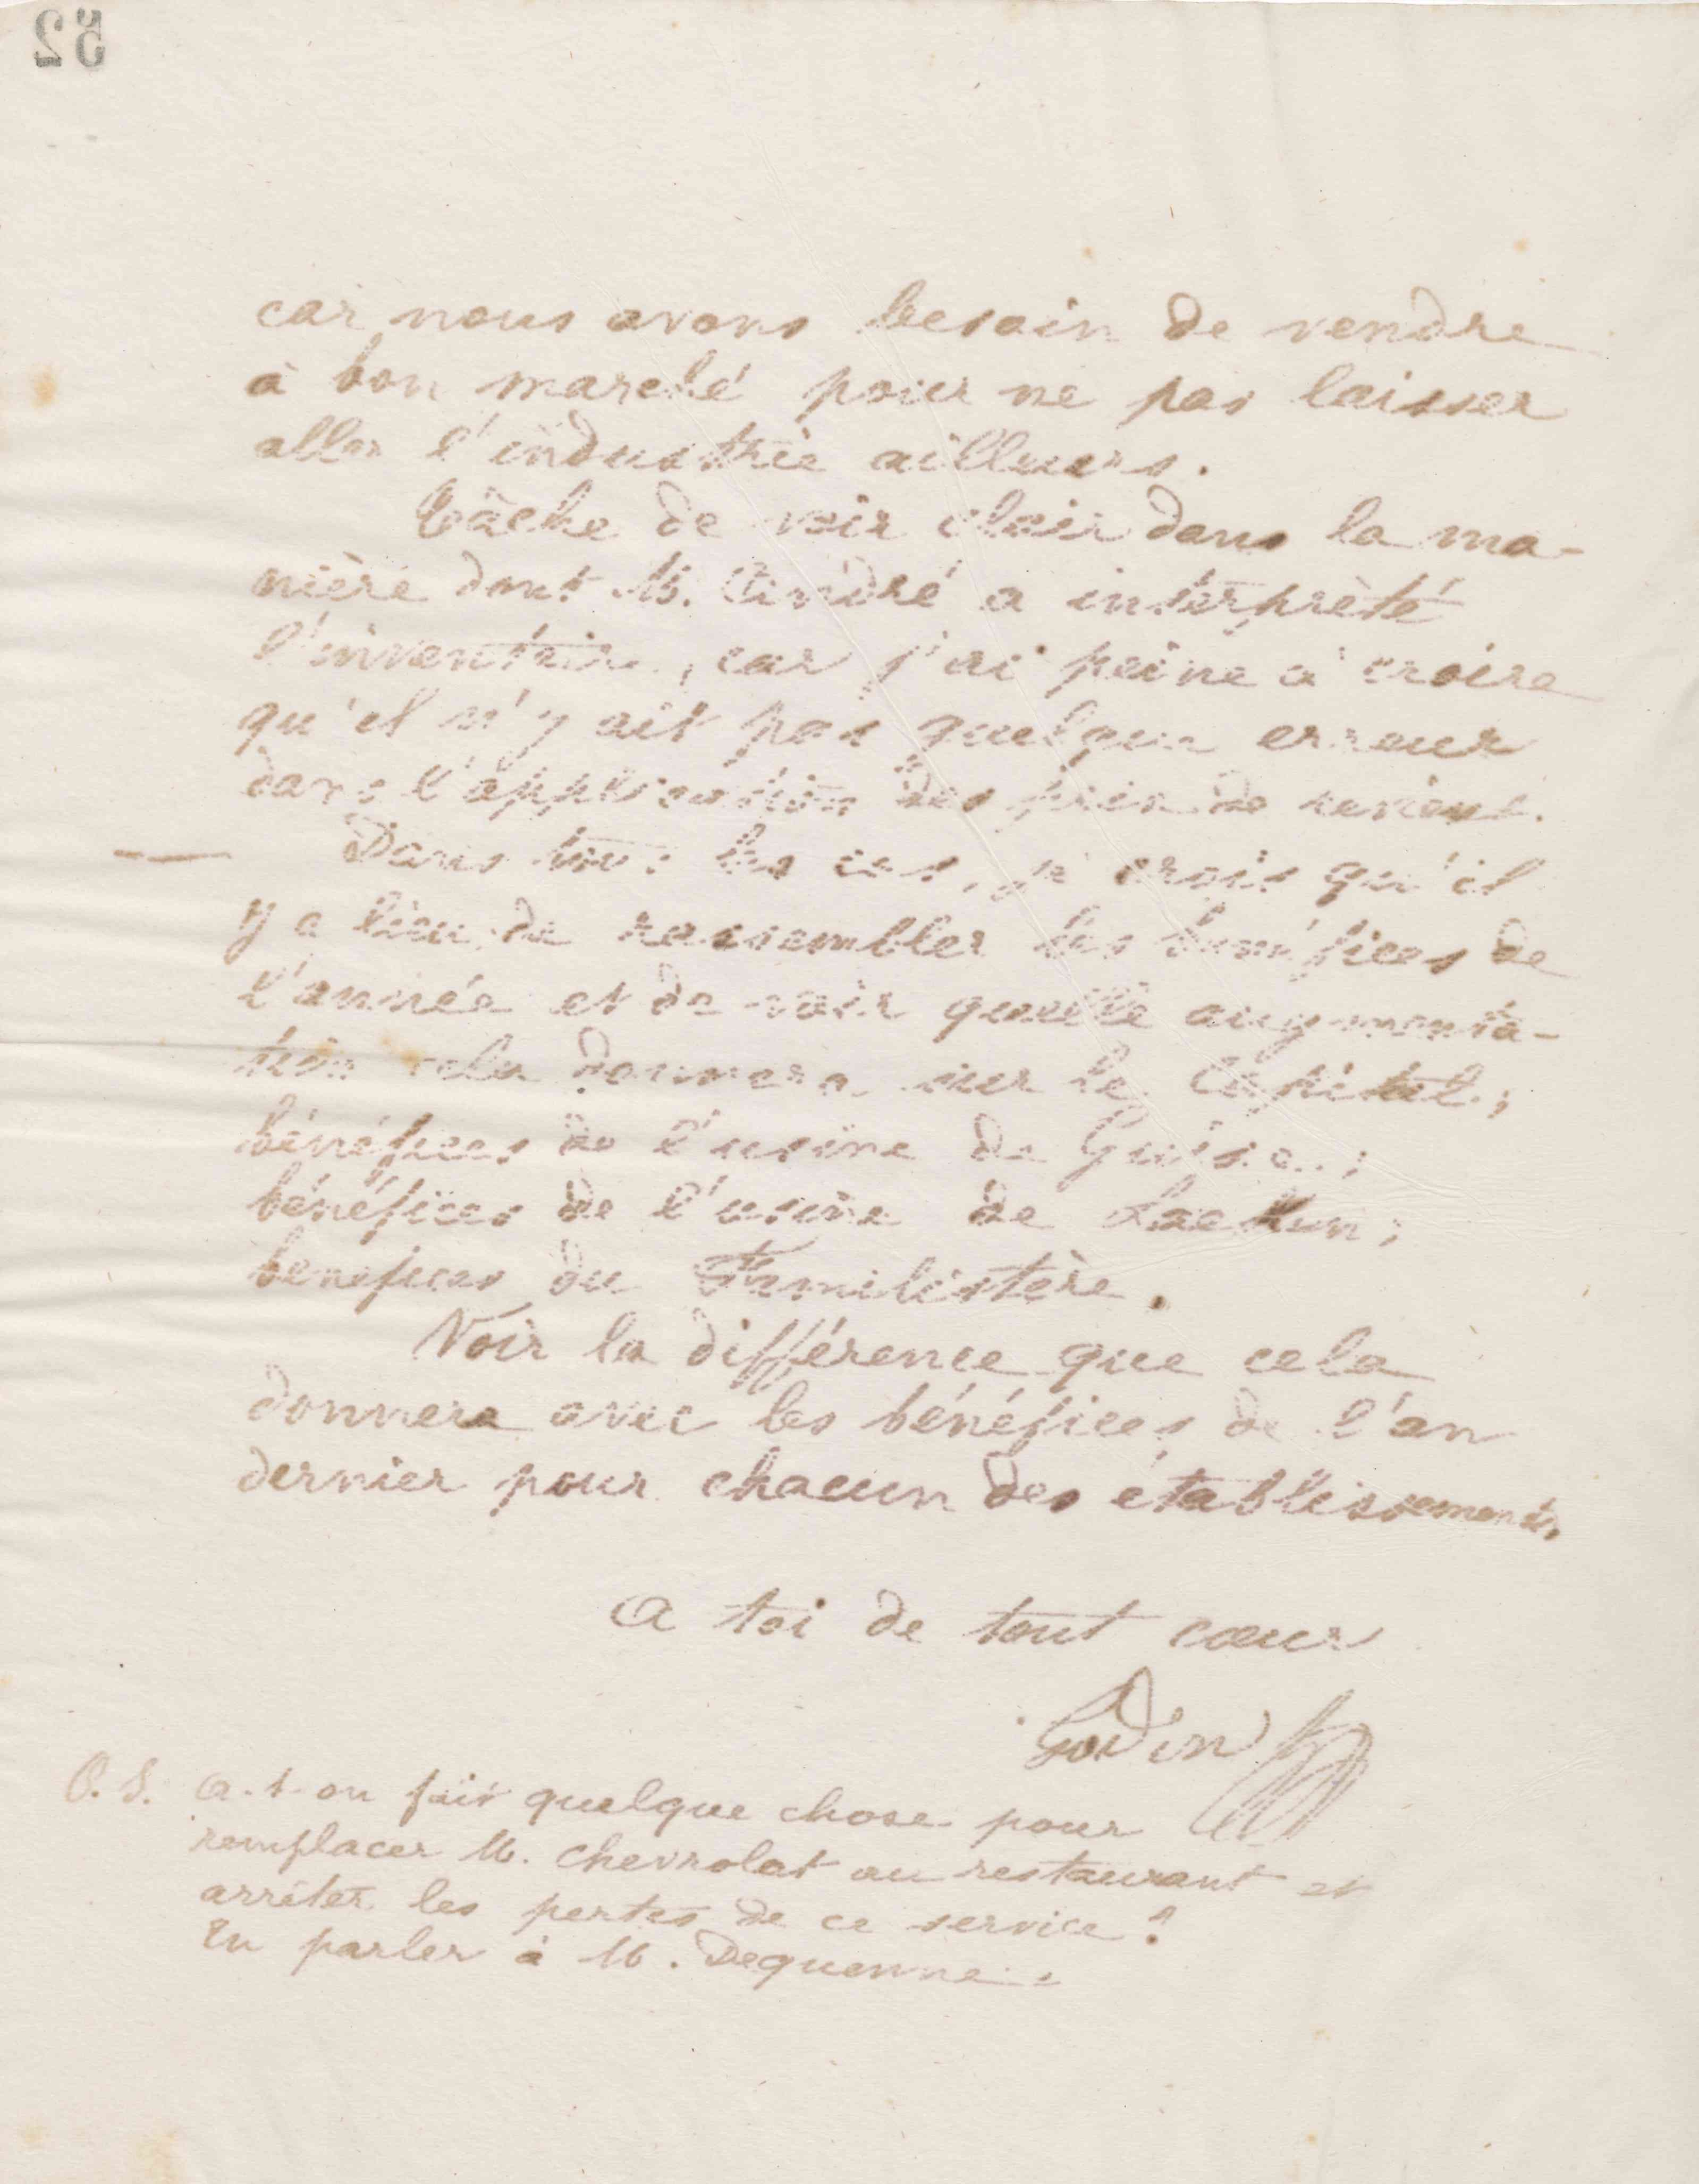 52
car nous avons besoin de vendre
à bon marché pour ne pas laisser
aller l'industrie ailleurs.
Tâche de voir clair dans la ma-
nière dont M. André a interprèté
l'inventaire, car j'ai peine à croire
qu'il n'y ait pas quelque erreur
dans l'application des prix de revient.
— Dans tous les cas, je crois qu'il
y a lieu de rassembler les bénéfices de
l'année et de voir quelle augmenta-
tion cela donnera sur le Capital;
bénéfices de l'usine de Guise;
bénéfices de l'usine de Laeken;
bénéfices du Familistère.
Voir la différence que cela
donnera avec les bénéfices de l'an
dernier pour chacun des établissements.
A toi de tout cœur
Godin
P. S. A-t-on fait quelque chose pour
remplacer M. Chevrolat au restaurant et
arrêter les pertes de ce service?
En parler à M. Dequenne.